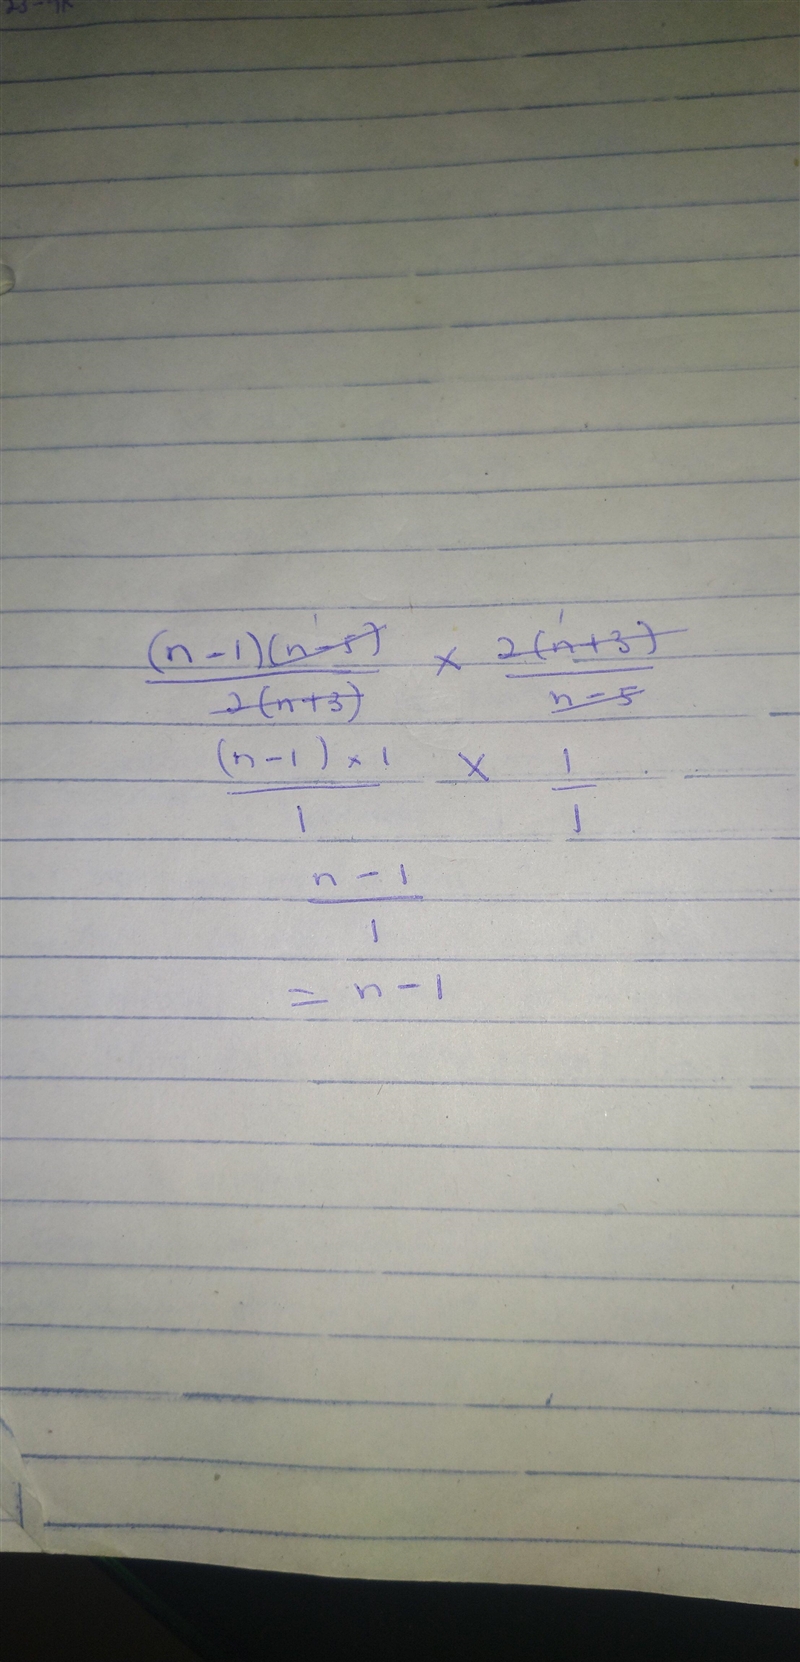 (n-1)(n-5)/2(n+3) × 2(n+3)/n-5
(n-1)×1/1 × 1/1
n-1/1
= n-1